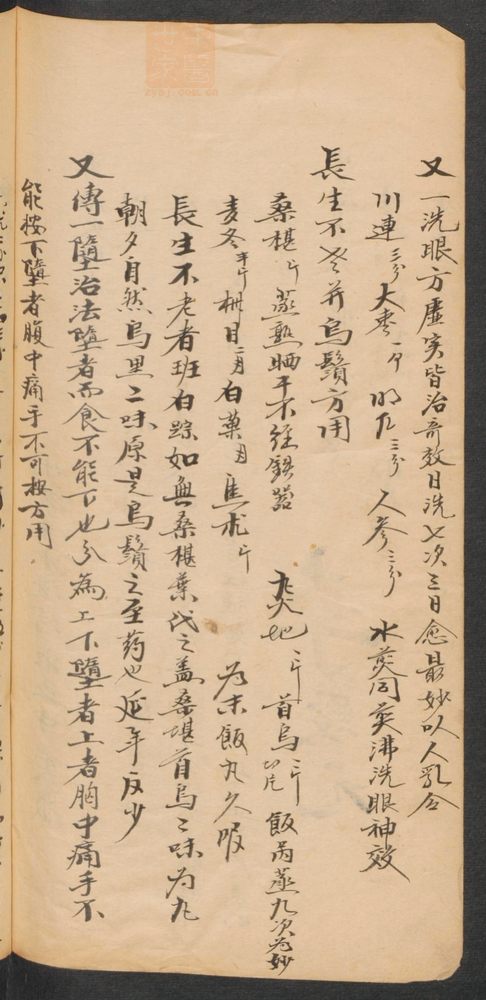 又一洗眼方虛实皆治奇效日洗七次三日愈最妙以人乳合
川連三分大枣一个 三分 人參三分 水煎同煎沸洗眼神效
長生不老并烏鬚方用
桑椹 蒸熟晒干不經鉄器 大熟地 二斤 首烏二斤 飯內蒸九次为妙
麦冬半斤 桃目 白菓 蒼朮 为末飯丸久服
長生不老者班白踪如無桑椹葉代之盖桑堪首烏二味为丸
朝夕自然烏黑二味原是烏鬚之至药也延年反少
又傳一墮治法墮者而食不能下也分為上下墮者上者胸中痛手不
能按下墮者腹中痛手不可按方用